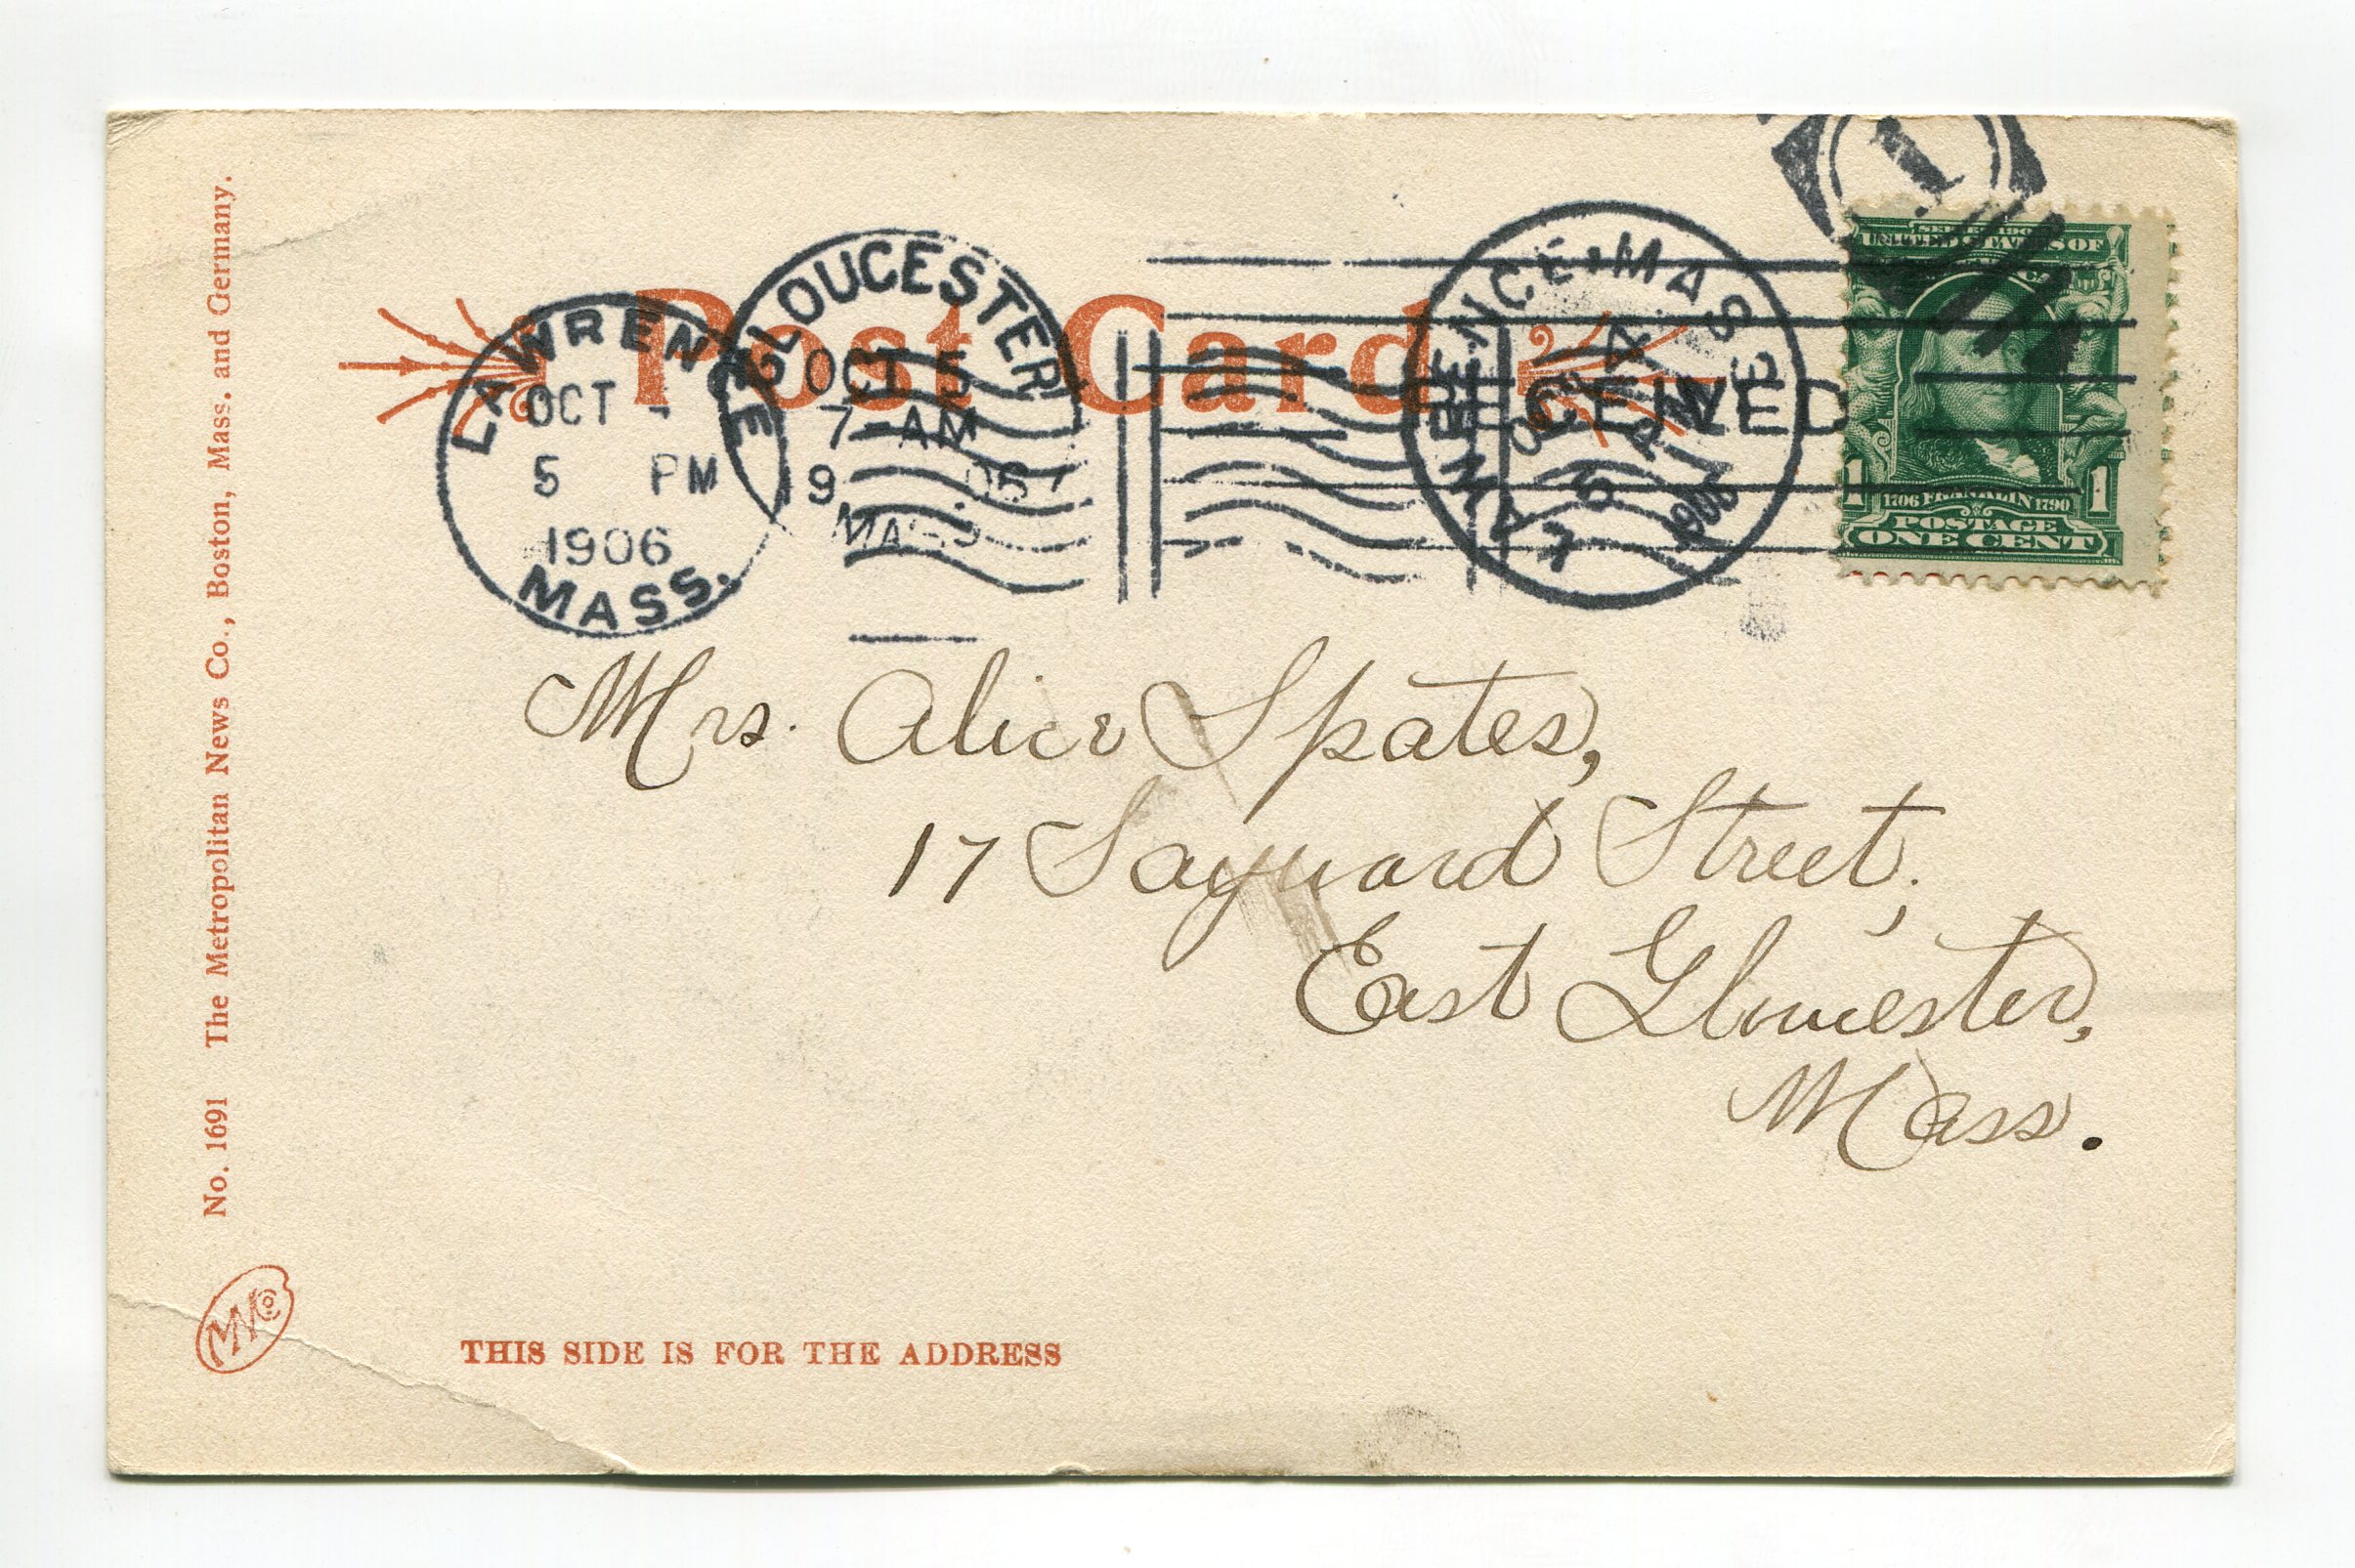 Post Card
LAWRENCE
OCT
5 PM
1906
MASS.
GLOUCESTER
OCT 5
7-AM
9 06
MASS
RECEIVED
LAWRENCE, MASS
OCT 4
5 PM
1906
1
SERIES 1902
UNITED STATES OF
1706 FRANKLIN 1790
1 1
POSTAGE
ONE CENT
Mrs. Alice Spates,
17 Sayward Street,
East Gloucester,
Mass.
No. 1691 The Metropolitan News Co., Boston, Mass. and Germany.
MNCo
THIS SIDE IS FOR THE ADDRESS